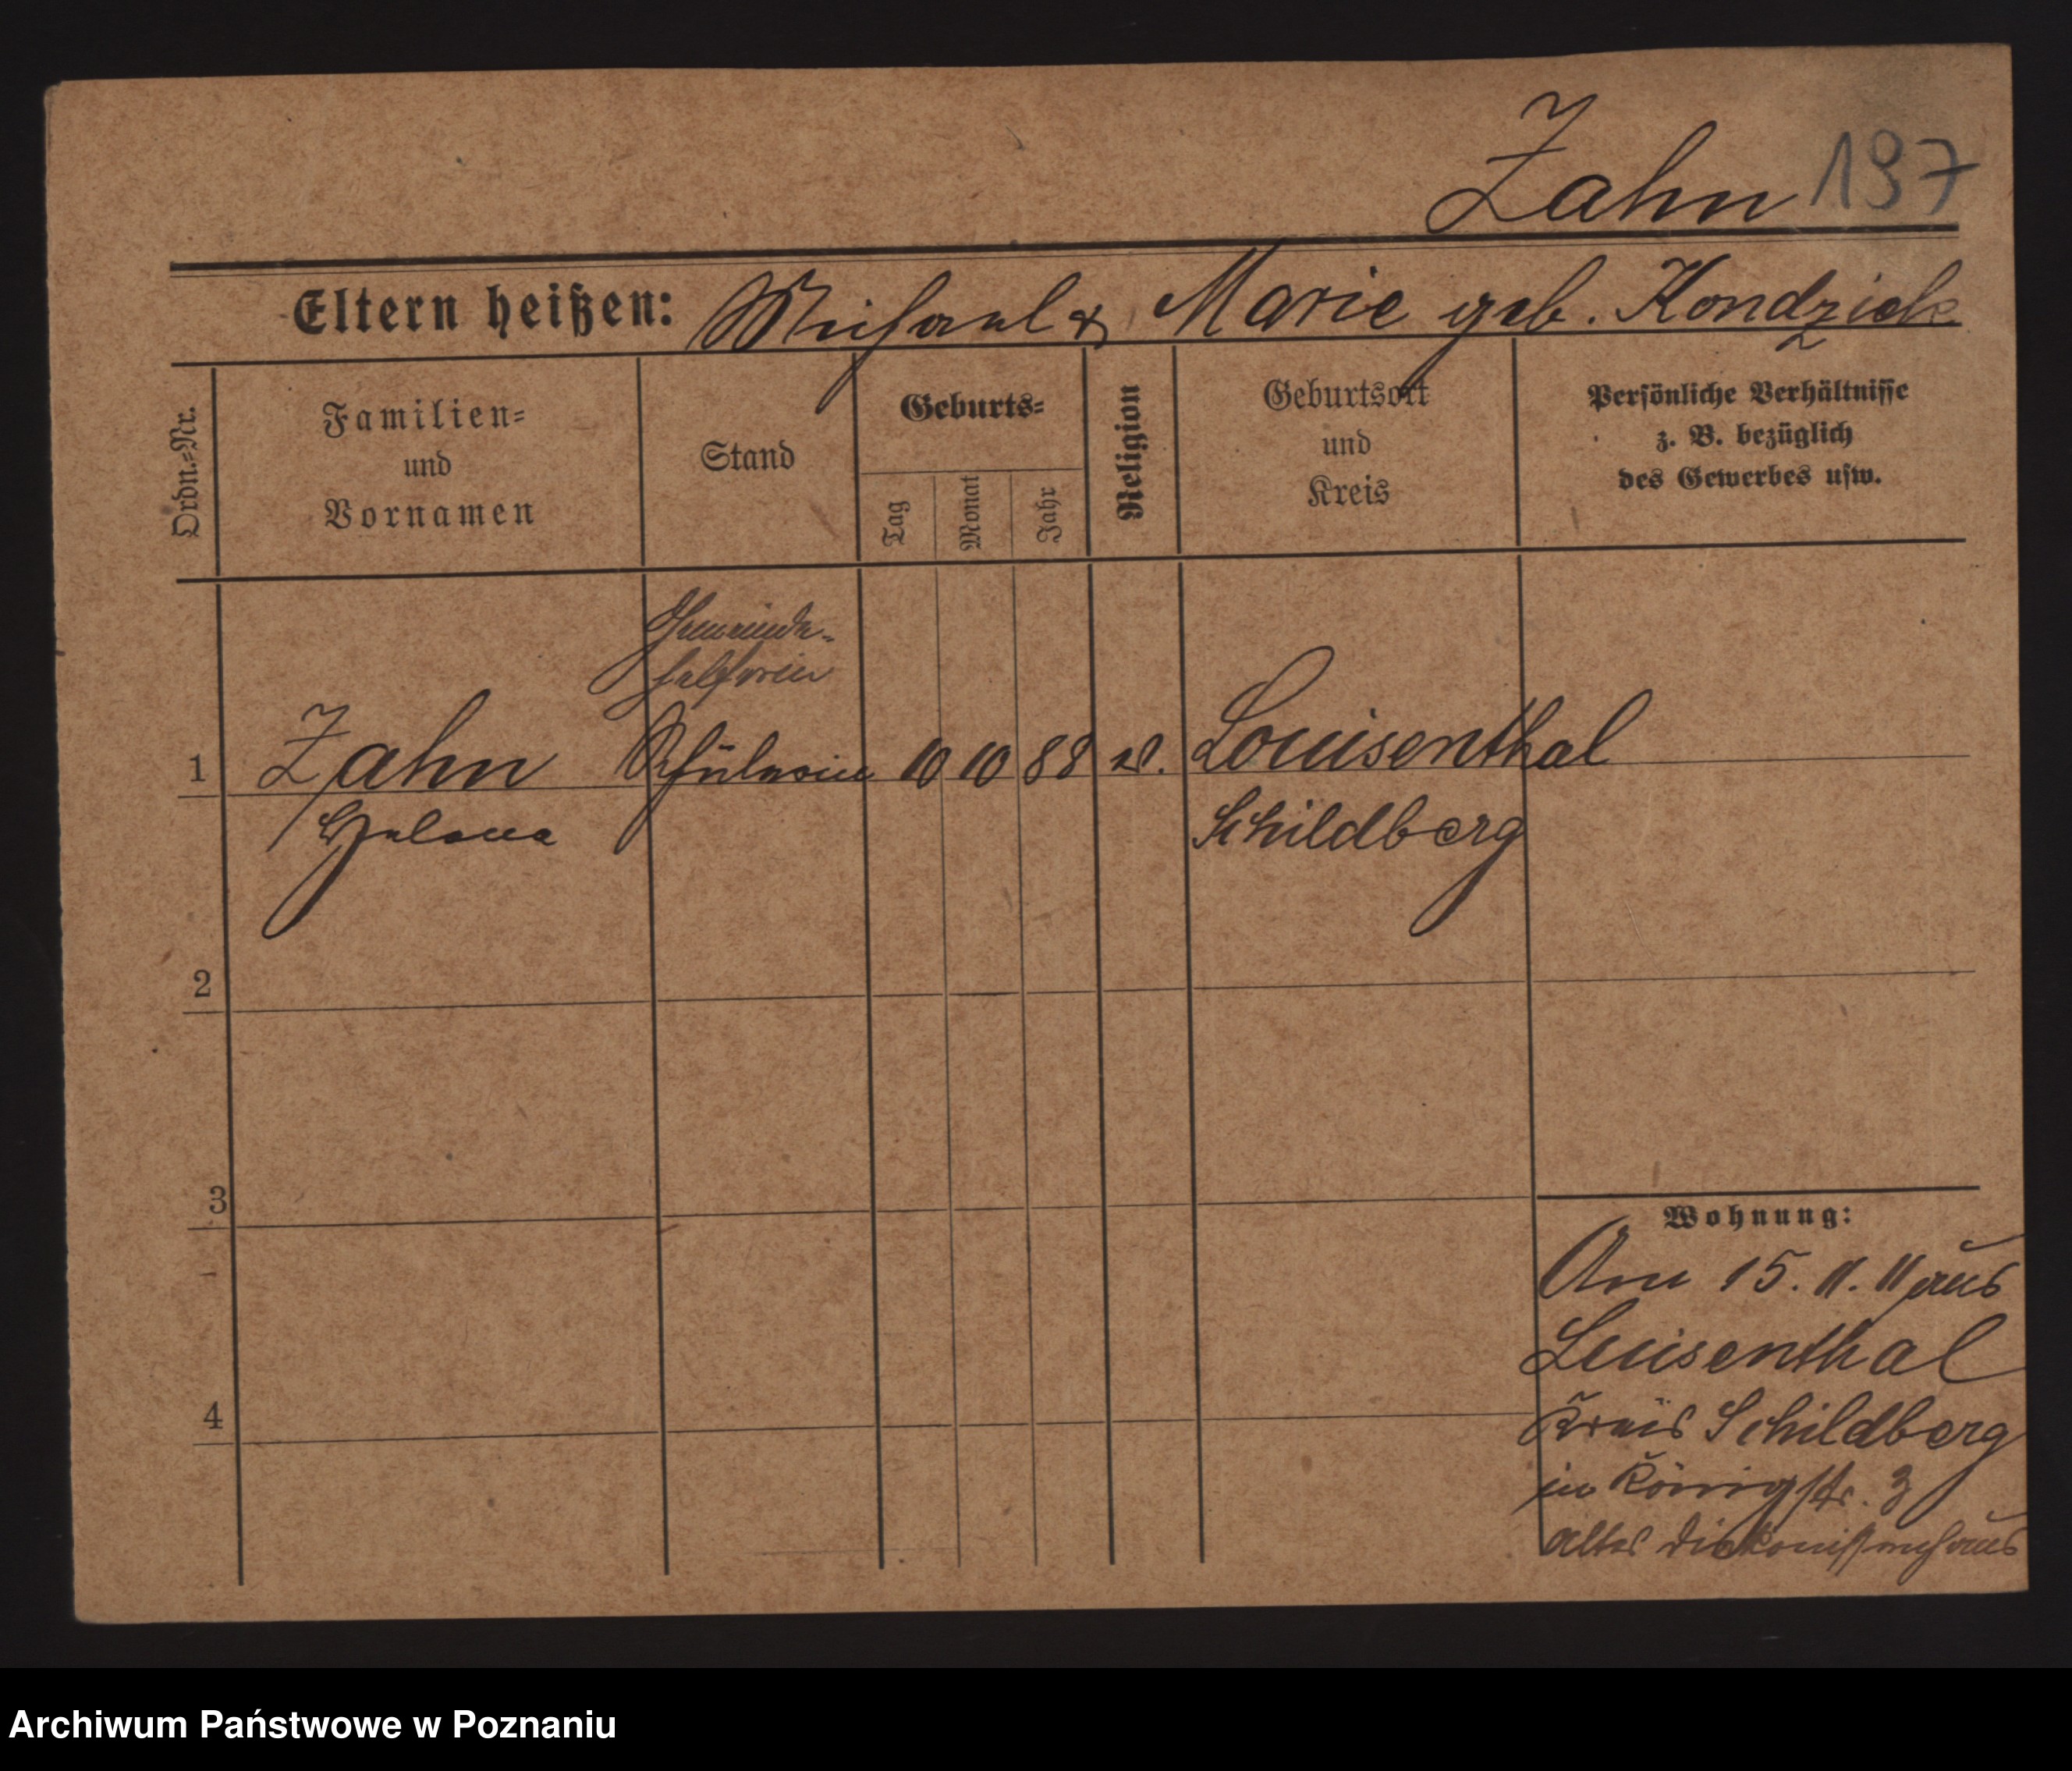 Zahn 197
Eltern heißen: Michael & Marie geb. Kondziele
Ordn.-Nr.
Familien-
und
Vornamen
Stand
Geburts-
Tag
Monat
Jahr
Religion
Geburtsort
und
Kreis
Persönliche Verhältnisse
z. B. bezüglich
des Gewerbes usw.
Gemeinde-
helferin
1 Zahn Schülerin 10 10 88 ev. Louisenthal
Helena Schildberg
2
3
4
Wohnung:
Am 15. 11. 11 aus
Luisenthal
Kreis Schildberg
in Königstr. 3
altes Diakonissenhaus
Archiwum Państwowe w Poznaniu